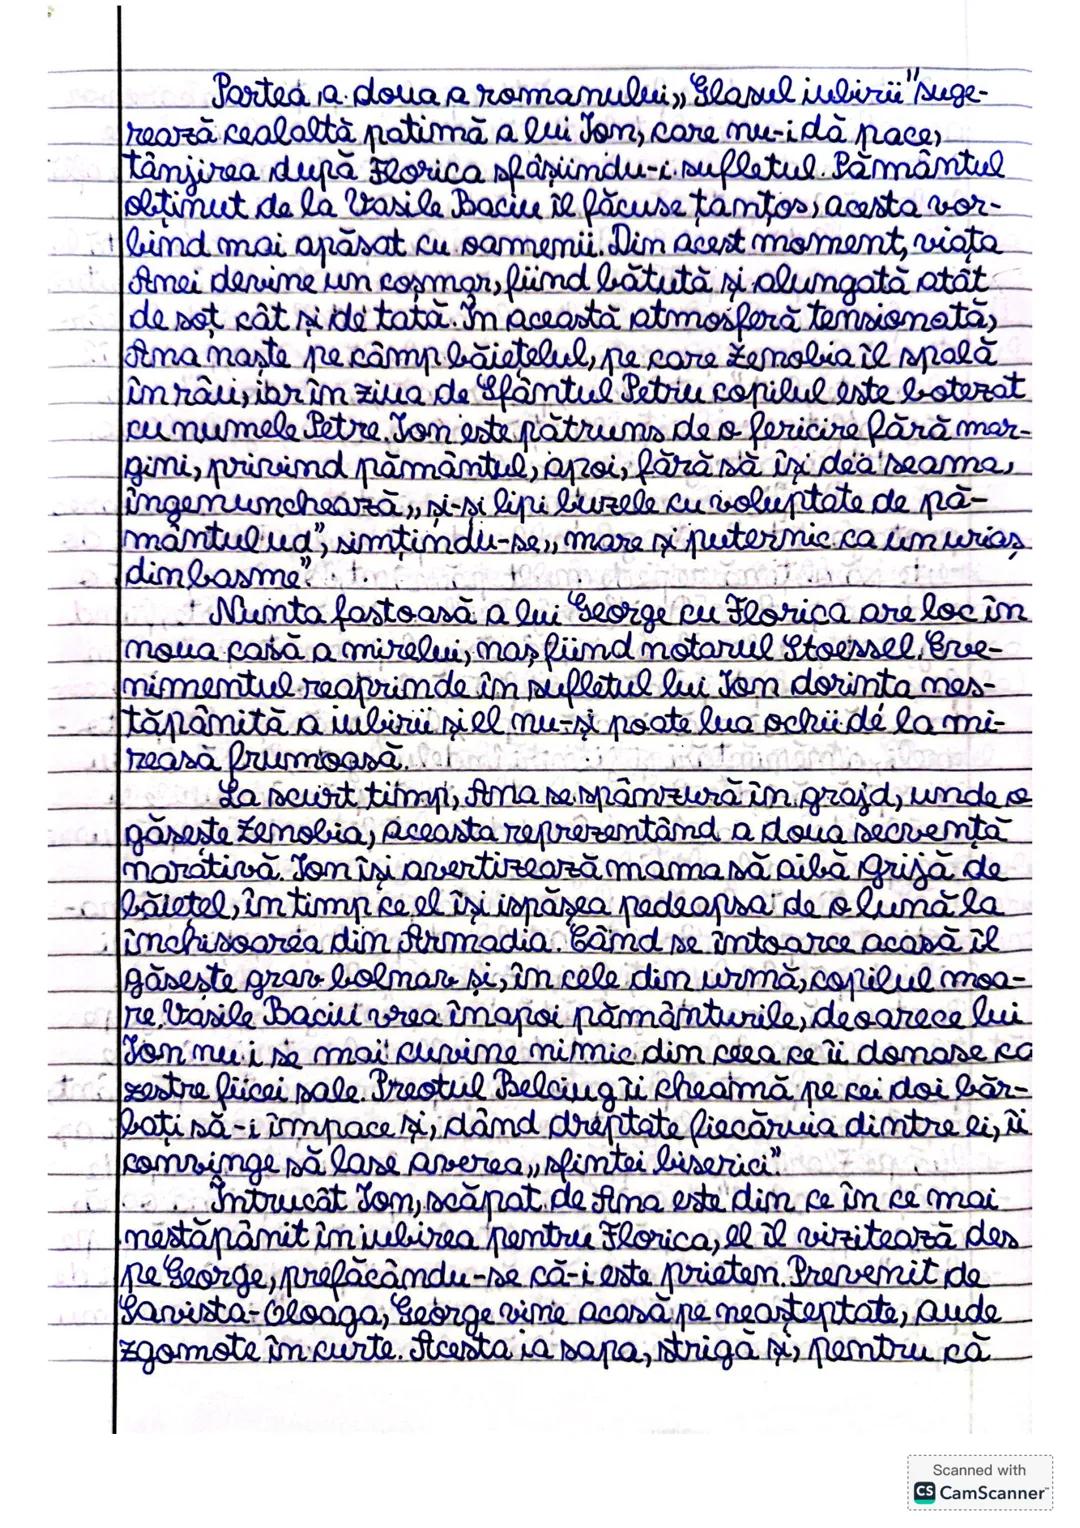 Partea a doua a romanului „Glasul iubirii" suge-
rează cealaltă patimă a lui Ion, care nu-i dă pace,
tânjirea după Florica sfâșiindu-i sufletul. Pământul
obținut de la Vasile Baciu îl făcuse țanțoș, acesta vor-
bind mai apăsat cu oamenii. Din acest moment, viața
Anei devine un coșmar, fiind bătută și alungată atât
de soț cât și de tată. În această atmosferă tensionată,
Ana naște pe câmp băiețelul, pe care Zenobia îl spală
în râu, iar în ziua de Sfântul Petru copilul este botezat
cu numele Petre. Ion este pătruns de o fericire fără mar-
gini, privind pământul, apoi, fără să își dea seama,
îngenunchează „și-și lipi buzele cu voluptate de pă-
mântul ud", simțindu-se „mare și puternic ca un uriaș
din basme".
Nunta fastoasă a lui George cu Florica are loc în
noua casă a mirelui, naș fiind notarul Stoessel. Eve-
nimentul reaprinde în sufletul lui Ion dorința nes-
tăpânită a iubirii și el nu-și poate lua ochii de la mi-
reasă frumoasă.
La scurt timp, Ana se spânzură în grajd, unde o
găsește Zenobia, aceasta reprezentând a doua secvență
narativă. Ion își avertizează mama să aibă grijă de
băiețel, în timp ce el își ispășea pedeapsa de o lună la
închisoarea din Armadia. Când se întoarce acasă îl
găsește grav bolnav și, în cele din urmă, copilul moa-
re. Vasile Baciu vrea înapoi pământurile, deoarece lui
Ion nu i se mai cuvine nimic din ceea ce îi donase ca
zestre fiicei sale. Preotul Belciug îi cheamă pe cei doi băr-
bați să-i împace și, dând dreptate fiecăruia dintre ei, îi
convinge să lase averea „sfintei biserici".
Întrucât Ion, scăpat de Ana este din ce în ce mai
nestăpânit în iubirea pentru Florica, el îl vizitează des
pe George, prefăcându-se că-i este prieten. Prevenit de
Savista-Oloaga, George vine acasă pe neașteptate, aude
zgomote în curte. Acesta ia sapa, strigă și, pentru că
Scanned with
CS CamScanner